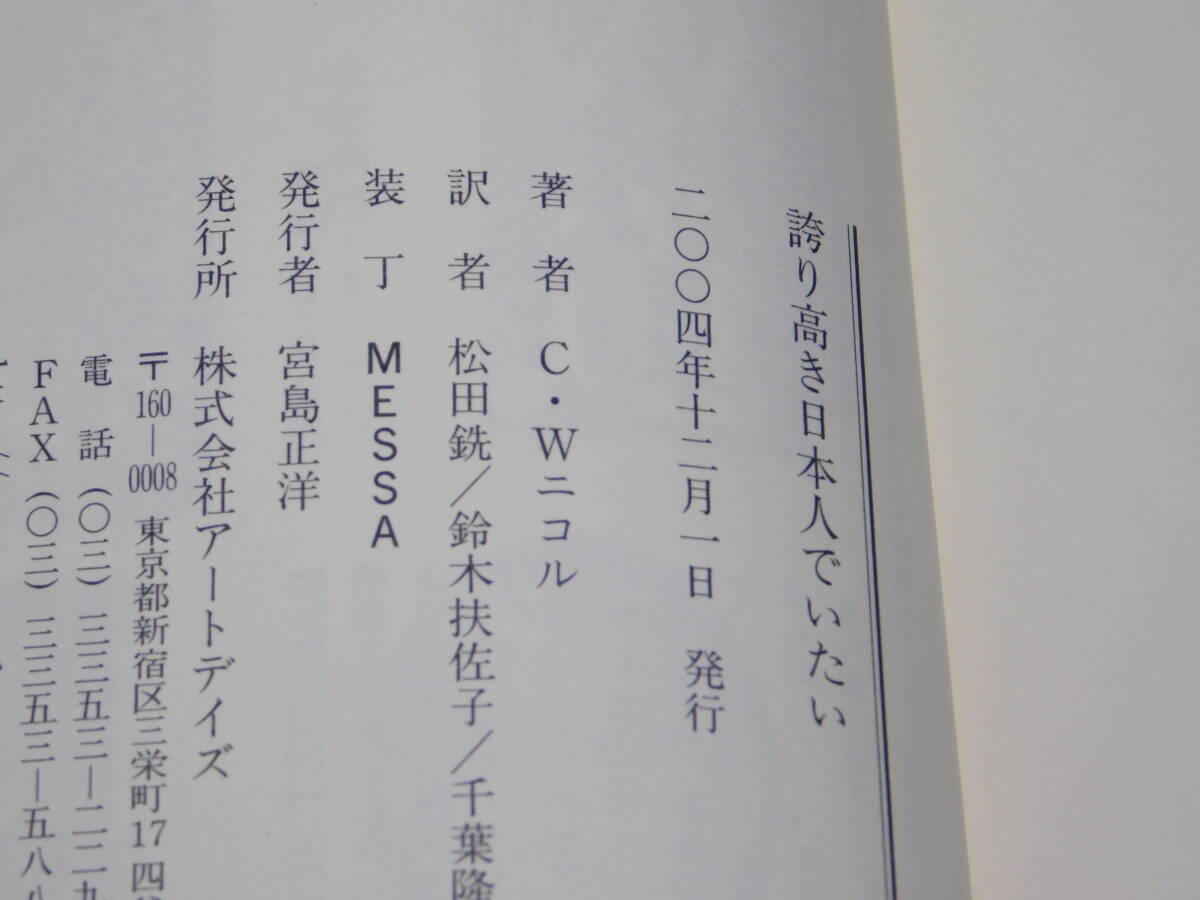 誇り高き日本人でいたい
二〇〇四年十二月一日 発行
著者 C・Wニコル
訳者 松田銑/鈴木扶佐子/千葉隆
装丁 MESSA
発行者 宮島正洋
発行所 株式会社アートデイズ
〒160―0008 東京都新宿区三栄町17 四
電話 (〇三) 三三五三―二二九
FAX (〇三) 三三五三―五八八